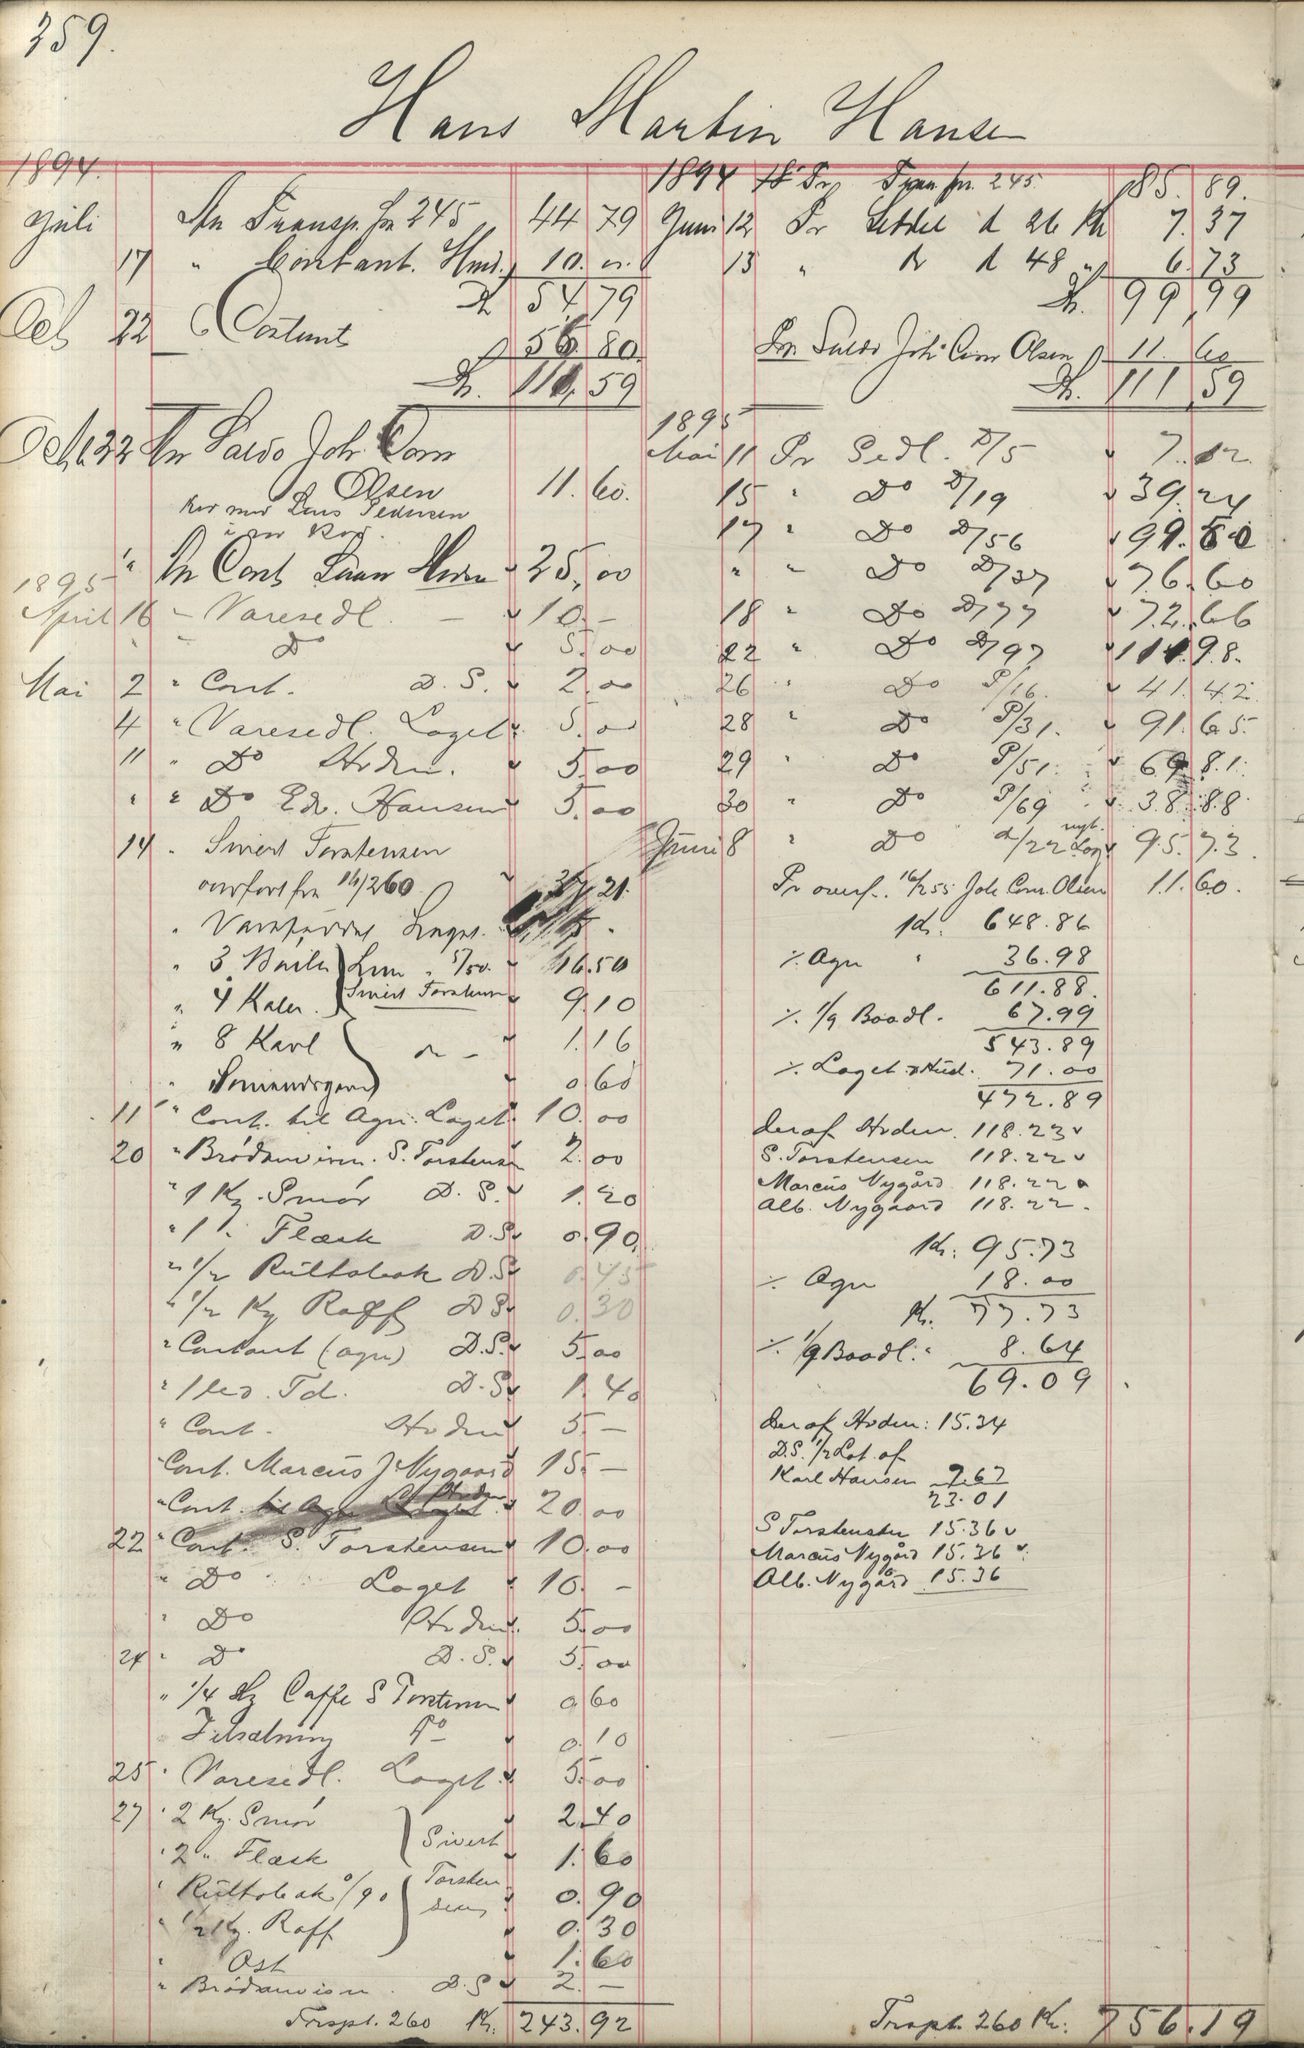 359.
Hans Martin Hansen
1894.
Juli An Transp. fra 245 44 79
17 " Contant. Hmd. 10. "
Kr 54.79
Oct 22 Contant 56 80.
Kr. 111,59
Oct. 22 An Saldo Joh. Corn
Olsen 11. 60.
" An Cont Laan Hvdn 25,00
1895
April 16 " Varesedl. - 10. -
" " Do 5.00
Mai 2 " Cont. D. S. 2.00
4 " Varesedl. Laget. 5.00
11 " Do Hvdn. 5.00
" " Do Edv. Hansen 5.00
14 " Sivert Torstensen
overfort fra 14/260 37 21.
" Laget.
" 3 Baile Lun " 5/50. 16.50
" 4 Kaler. Sivert Torstensen 9.10
" 8 Kavl do - 1.16
" 0.60
11 " Cont. til Agn. Laget. 10.00
20 " Brödanvisn. S. Torstensen 2.00
" 1 Kg. Smör D. S. 1.20
" 1 " Flæsk D.S. 0.90.
" 1/2 Rultobak D.S. 0.45
" 1/2 Kg Raff D.S. 0.30
" Contant (agn) D.S. 5.00
" 1 Td. D.S. 1.40
" Cont. Hvdn 5. -
" Cont. Marcus J Nygaard 15. -
" Cont. til Agn Hvdn 20.00
22 " Cont. S. Torstensen 10.00
" Do Laget 10. -
" Do Hvdn. 5.00
24 " Do D.S. 5.00
" 1/4 Kg Caffe S Torstensen 0.60
" Do 0.10
25 " Varesedl. Laget. 5.00
27 " 2 Kg. Smör Sivert 2.40
" 2 " Flæsk 1.60
" Rultobak 0/90 Torsten 0.90
" 1/2 Kg. Raff sen 0.30
" Ost 1.60
" Brödanvisn. D.S 2. -
Trspt. 260 Kr. 243.92
1894 Pr Tran fra 245. 85. 89.
Juni 12 Pr Seddel d 26 Kr 7. 37
13 " do d 48 " 6.73
Kr. 99,99
Pr. Saldo Joh. Corn Olsen 11. 60
Kr. 111,59
1895
Mai 11 Pr Sedl. D/5 7. 12.
15 " Do D/19 39.24
17 " Do D/56 91.50
" " Do D/37 76.60
18 " Do D/77 72.66
22 " Do D/97 111.98.
26 " Do P/16. 41.42
28 " Do P/31. 91.65.
29 " Do P/51. 69.81.
30 " Do P/69 38.88
Juni 8 " Do d/22 95.73.
Pr overf. 16/255 Joh Corn. Olsen 11.60.
Kr. 648.86
% Agn " 36.98
611.88.
%. 1/9 Baadl. 67.99
543.89
%. Laget 71.00
472.89
Deraf Hvdn. 118.23
S. Torstensen 118.22
Marcus Nygård 118.22
Alb. Nygaard 118.22.
Kr. 95.73
%. Agn 18.00
Kr. 77.73
%. 1/9 Baadl. " 8.64
69.09
Deraf Hvdn: 15.34
D.S. 1/2 Lot af
Karl Hansen 7.67
23.01
S Torstensen 15.36
Marcus Nygård 15.36
Alb. Nygård 15.36
Trspt. 260 Kr. 756.19